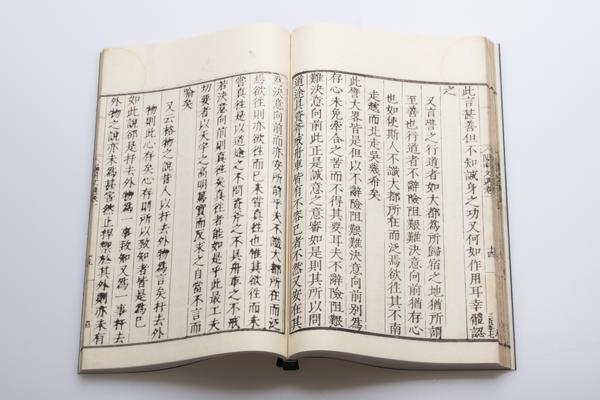 此言甚善但不知誠身之功又何如作用耳幸體認
之
又言譬之行道者如大都為所歸宿之地猶所謂
至善也行道者不辭險阻艱難決意向前猶存心
也如使斯人不識大都所在而泛焉欲往其不南
走越而北走吳幾希矣
此譬大畧皆是但以不辭險阻艱難決意向前別為
存心未免牽合之苦而不得其要耳夫不辭險阻艱
難決意向前此正是誠意之意審如是則其所以問
道途具資斧戒舟車皆有不容已者不然又安在其
為決意向前而亦安所前乎夫不識大都所在而泛
焉欲往則亦欲往而已未嘗真往也惟其欲往而未
嘗真往是以道途之不問資斧之不具舟車之不戒
若決意向前則真往矣真往者能如是乎此最工夫
切要者以天宇之高明篤實而反求之自當不言而
喻矣
又云格物之說昔人以扞去外物為言矣扞去外
物則此心存矣心存則所以致知者皆是為己
如此說卻是扞去外物為一事致知又為一事扞去
外物之說亦未為甚害然止捍禦於其外則亦未有